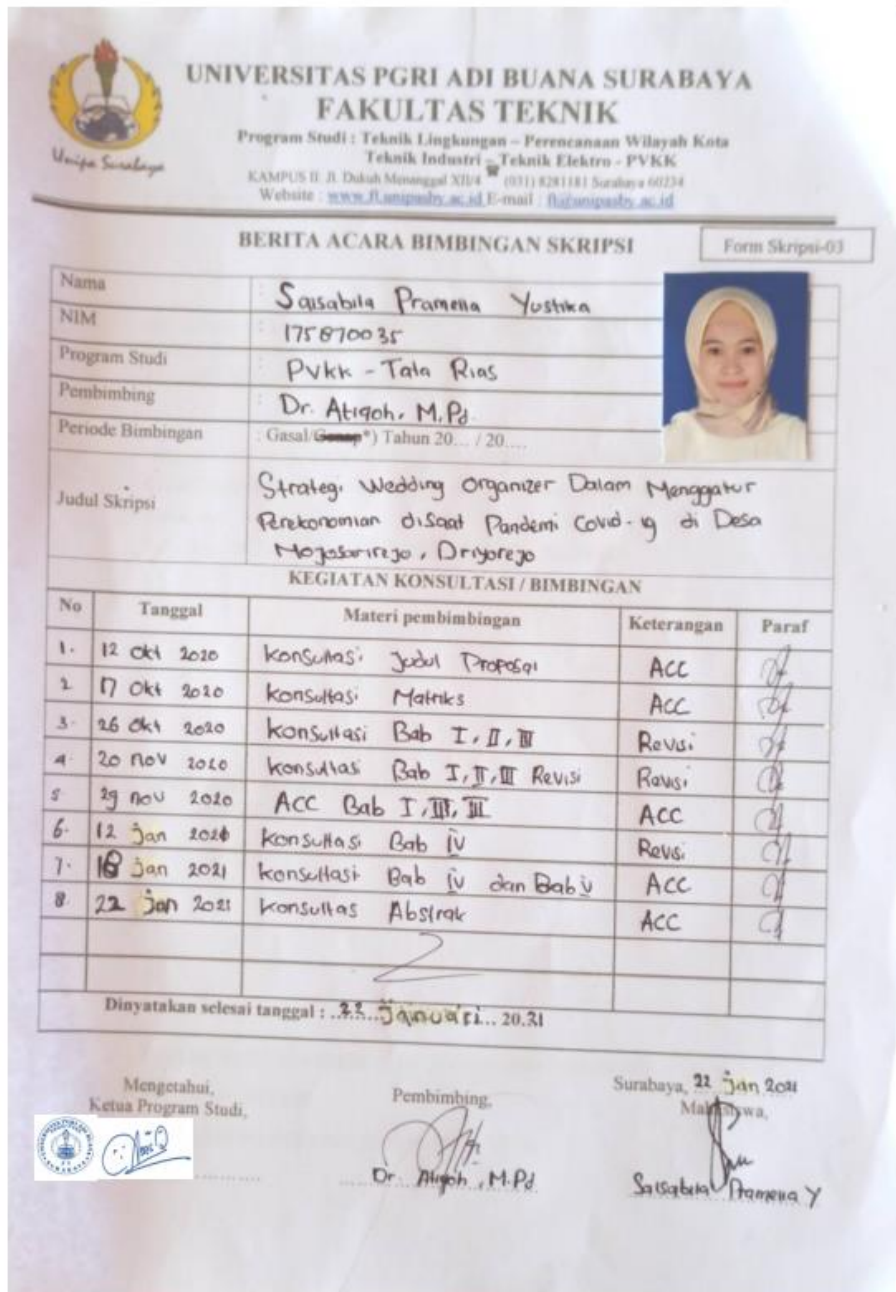 UNIVERSITAS PGRI ADI BUANA SURABAYA
FAKULTAS TEKNIK
Program Studi : Teknik Lingkungan – Perencanaan Wilayah Kota
Teknik Industri – Teknik Elektro - PVKK
KAMPUS II. Jl. Dukuh Menanggal XII/4 ☎ (031) 8281181 Surabaya 60234
Website : www.ft.unipasby.ac.id E-mail : ft@unipasby.ac.id
Unipa Surabaya
BERITA ACARA BIMBINGAN SKRIPSI
Form Skripsi-03
Nama : Salsabila Pramella Yustika
NIM : 175870035
Program Studi : PVKK - Tata Rias
Pembimbing : Dr. Atiqoh, M.Pd
Periode Bimbingan : Gasal/Genap*) Tahun 20... / 20....
Judul Skripsi
Strategi Wedding Organizer Dalam Menggatur
Perekonomian disaat Pandemi Covid-19 di Desa
Mojosarirejo, Driyorejo
KEGIATAN KONSULTASI / BIMBINGAN
No Tanggal Materi pembimbingan Keterangan Paraf
1. 12 Okt 2020 Konsultasi Judul Proposal ACC
2. 17 Okt 2020 Konsultasi Matriks ACC
3. 26 Okt 2020 Konsultasi Bab I, II, III Revisi
4. 20 nov 2020 Konsultasi Bab I, II, III Revisi Revisi
5. 29 nov 2020 ACC Bab I, III, III ACC
6. 12 Jan 2021 Konsultasi Bab iv Revisi
7. 18 Jan 2021 Konsultasi Bab iv dan Bab v ACC
8. 22 Jan 2021 Konsultas Abstrak ACC
Dinyatakan selesai tanggal : ..22...Januari... 20.21
Surabaya, 22 Jan 2021
Mengetahui, Pembimbing, Mahasiswa,
Ketua Program Studi,
Dr. Atiqoh, M.Pd Salsabila Pramella Y